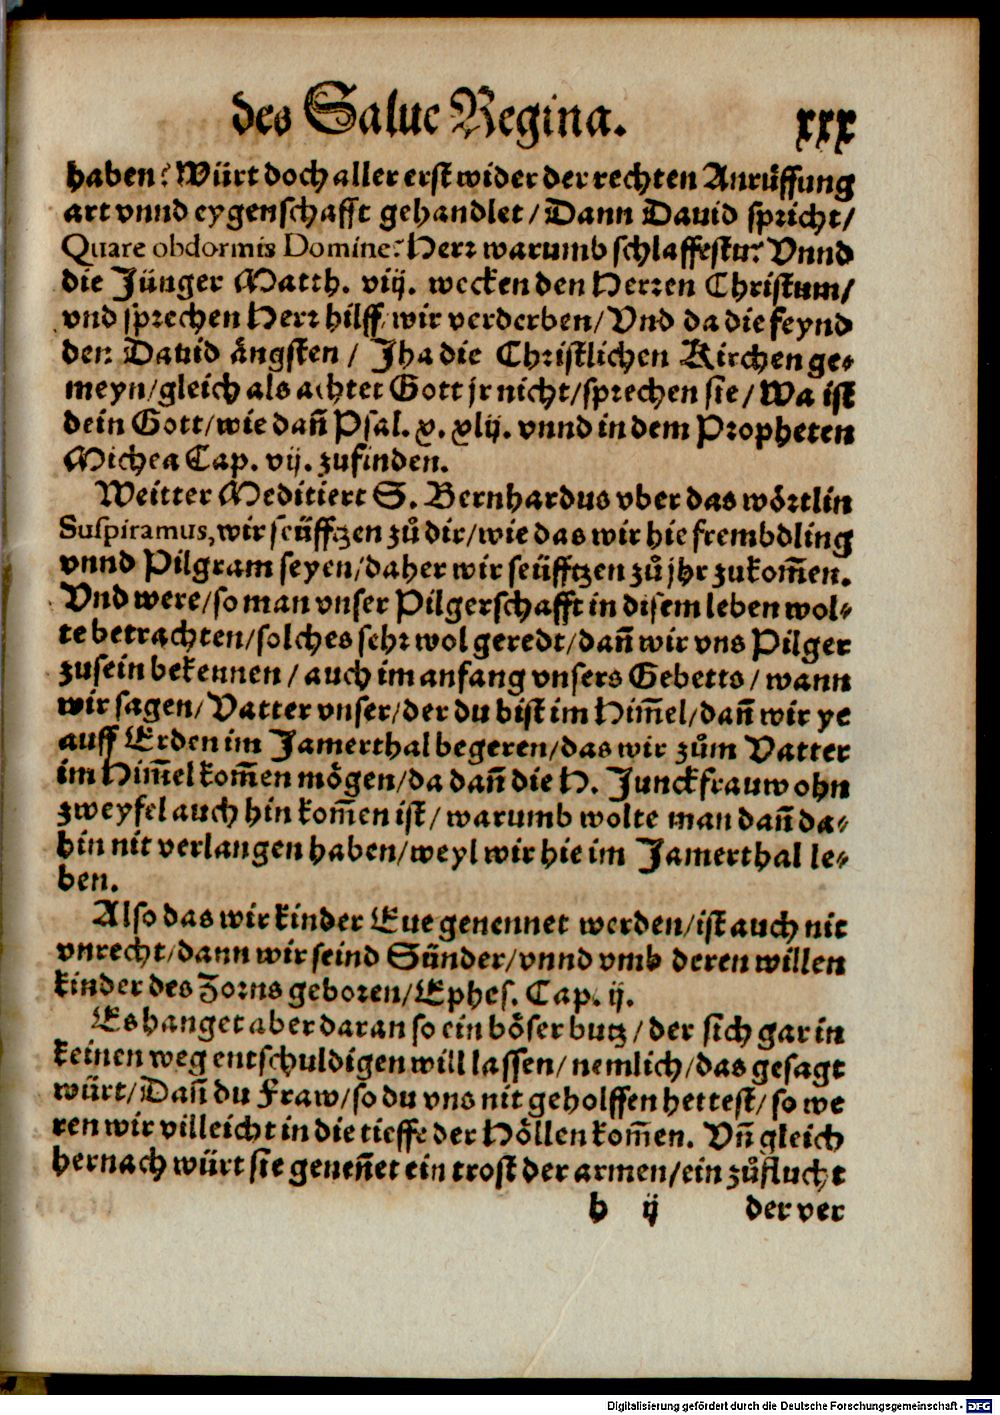 des Salue Regina. xxx
haben? Würt doch aller erst wider der rechten Anrůffung
art vnnd eygenschafft gehandlet / Dann Dauid spricht /
Quare obdormis Domine? Herr warumb schlaffestu? Vnnd
die Jünger Matth. viij. wecken den Herren Christum /
vnd sprechen Herr hilff / wir verderben / Vnd da die feynd
den Dauid ängsten / Jha die Christlichen Kirchen ge-
meyn / gleich als achtet Gott jr nicht / sprechen sie / Wa ist
dein Gott / wie dañ Psal. x. xlij. vnnd in dem Propheten
Michea Cap. vij. zufinden.
Weitter Meditiert S. Bernhardus vber das wörtlin
Suspiramus, wir seüfftzen zů dir / wie das wir hie frembdling
vnnd Pilgram seyen / daher wir seüfftzen zů jhr zukom̃en.
Vnd were / so man vnser Pilgerschafft in disem leben wol-
te betrachten / solches sehr wol geredt / dañ wir vns Pilger
zusein bekennen / auch im anfang vnsers Gebetts / wann
wir sagen / Vatter vnser / der du bist im Him̃el / dañ wir ye
auff Erden im Jamerthal begeren / das wir zům Vatter
im Him̃el kom̃en mögen / da dañ die H. Junckfrauw ohn
zweyfel auch hin kom̃en ist / warumb wolte man dañ da-
hin nit verlangen haben / weyl wir hie im Jamerthal le-
ben.
Also das wir kinder Eue genennet werden / ist auch nit
vnrecht / dann wir seind Sünder / vnnd vmb deren willen
kinder des Zorns geboren / Ephes. Cap. ij.
Es hanget aber daran so ein böser butz / der sich gar in
keinen weg entschuldigen will lassen / nemlich / das gesagt
würt / Dañ du Fraw / so du vns nit geholffen hettest / so we
ren wir villeicht in die tieffe der Höllen kom̃en. Vñ gleich
hernach würt sie geneñet ein trost der armen / ein zůflucht
h ij der ver
Digitalisierung gefördert durch die Deutsche Forschungsgemeinschaft - DFG